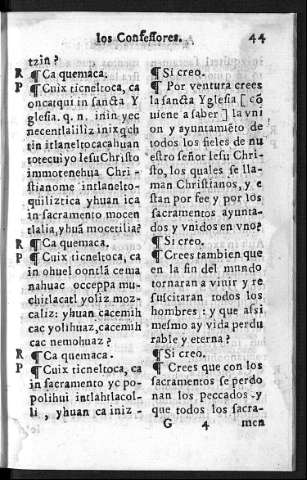 los Confessores. 44
tzin?
R ¶ Ca quemaca.
P ¶ Cuix ticneltoca, ca
oncatqui in sancta Y
glesia. q. n. inin yec
necentlaliliz inixqch
tin itlaneltocacahuan
totecuiyo Iesu Christo
immotenehua Chri-
stianome intlanelto-
quiliztica yhuan ica
in sacramento mocen
tlalia, yhuã mocetilia?
R ¶ Ca quemaca.
P ¶ Cuix ticneltoca, ca
in ohuel oontlã cema
nahuac occeppa mu-
chitlacatl yoliz moz-
caliz: yhuan cacemih
cac yolihuaz, cacemih
cac nemohuaz?
R ¶ Ca quemaca.
P ¶ Cuix ticneltoca, ca
in sacramento yc po-
polihui intlahtlacol-
li, yhuan ca iniz-
¶ Si creo.
¶ Por ventura crees
la sancta Yglesia [ cõ
uiene a saber ] la vni
on y ayuntamiẽto de
todos los fieles de nu
estro señor Iesu Chri-
sto, los quales se lla-
man Christianos, y e
stan por fee y por los
sacramentos ayunta-
dos y vnidos en vno?
¶ Si creo.
¶ Crees tambien que
en la fin del mundo
tornaran a viuir y re
suscitaran todos los
hombres: y que assi
mesmo ay vida perdu
rable y eterna?
¶ Si creo.
¶ Crees que con los
sacramentos se perdo
nan los peccados y
que todos los sacra-
G 4 men